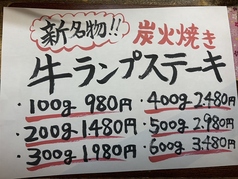 新名物!! 炭火焼き
牛ランプステーキ
・100g 980円 ・400g 2.480円
・200g 1480円 ・500g 2.980円
・300g 1.980円 ・600g 3.480円